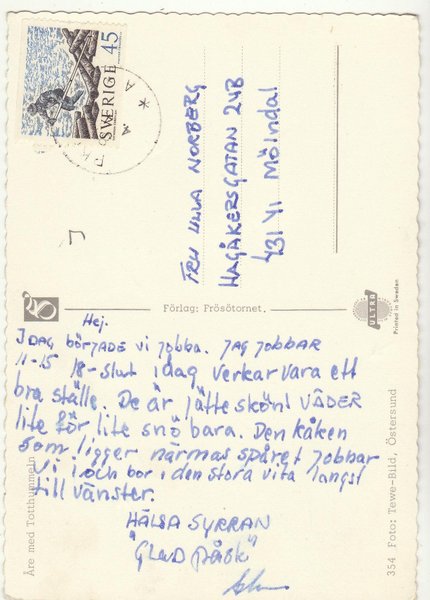 SVERIGE 45
FRU ULLA NORBERG
HAGÅKERSGATAN 24B
431 41 MÖLNDAL
Förlag: Frösötornet.
ULTRA
Printed in Sweden
Hej.
IDAG BÖRJADE vi jobba. JAG JOBBAR
11-15 18-slut idag verkar vara ett
bra ställe. De är jätteskönt VÄDER
lite för lite snö bara. Den kåken
som ligger närmas spåret jobbar
vi i och bor i den stora vita längst
till vänster.
HÄLSA SYRRAN
"GLAD PÅSK"
Åre med Totthummeln
354 Foto: Tewe-Bild, Östersund